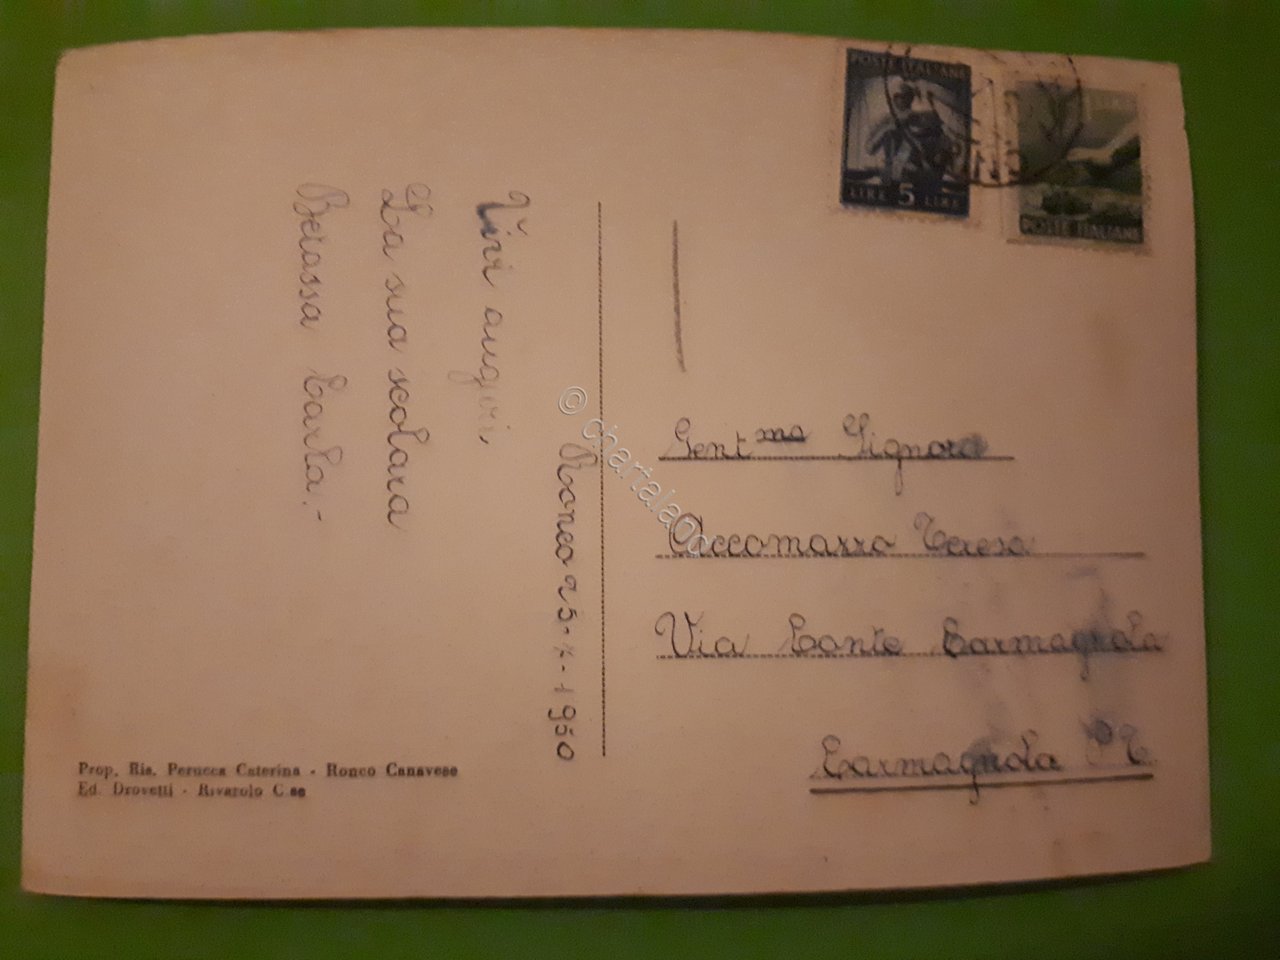 POSTE ITALIANE
LIRE 5 LIRE
POSTE ITALIANE
Ronco 25-7-1950
Vivi auguri
La sua scolara
Betassa Carla.-
Gent ma Signora
Accomazzo Teresa
Via Conte Carmagnola
Carmagnola
Prop. Ris. Perucca Caterina - Ronco Canavese
Ed. Drovetti - Rivarolo C.se